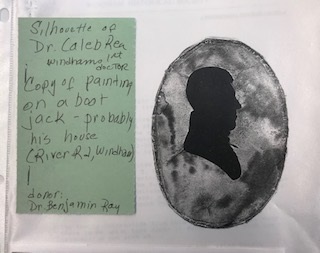 Silhouette of
Dr. Caleb Rea
Windham's 1st
doctor
Copy of painting
on a boot
jack - probably
his house
(River Rd, Windham)
donor:
Dr Benjamin Ray